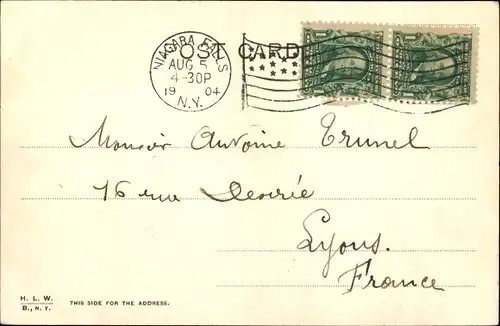 POST CARD
NIAGARA FALLS
AUG 5
4-30P
1904
N.Y.
Monsieur Antoine Trunel
16 rue Desirée
Lyons.
France
H. L. W.
B., N. Y.
THIS SIDE FOR THE ADDRESS.